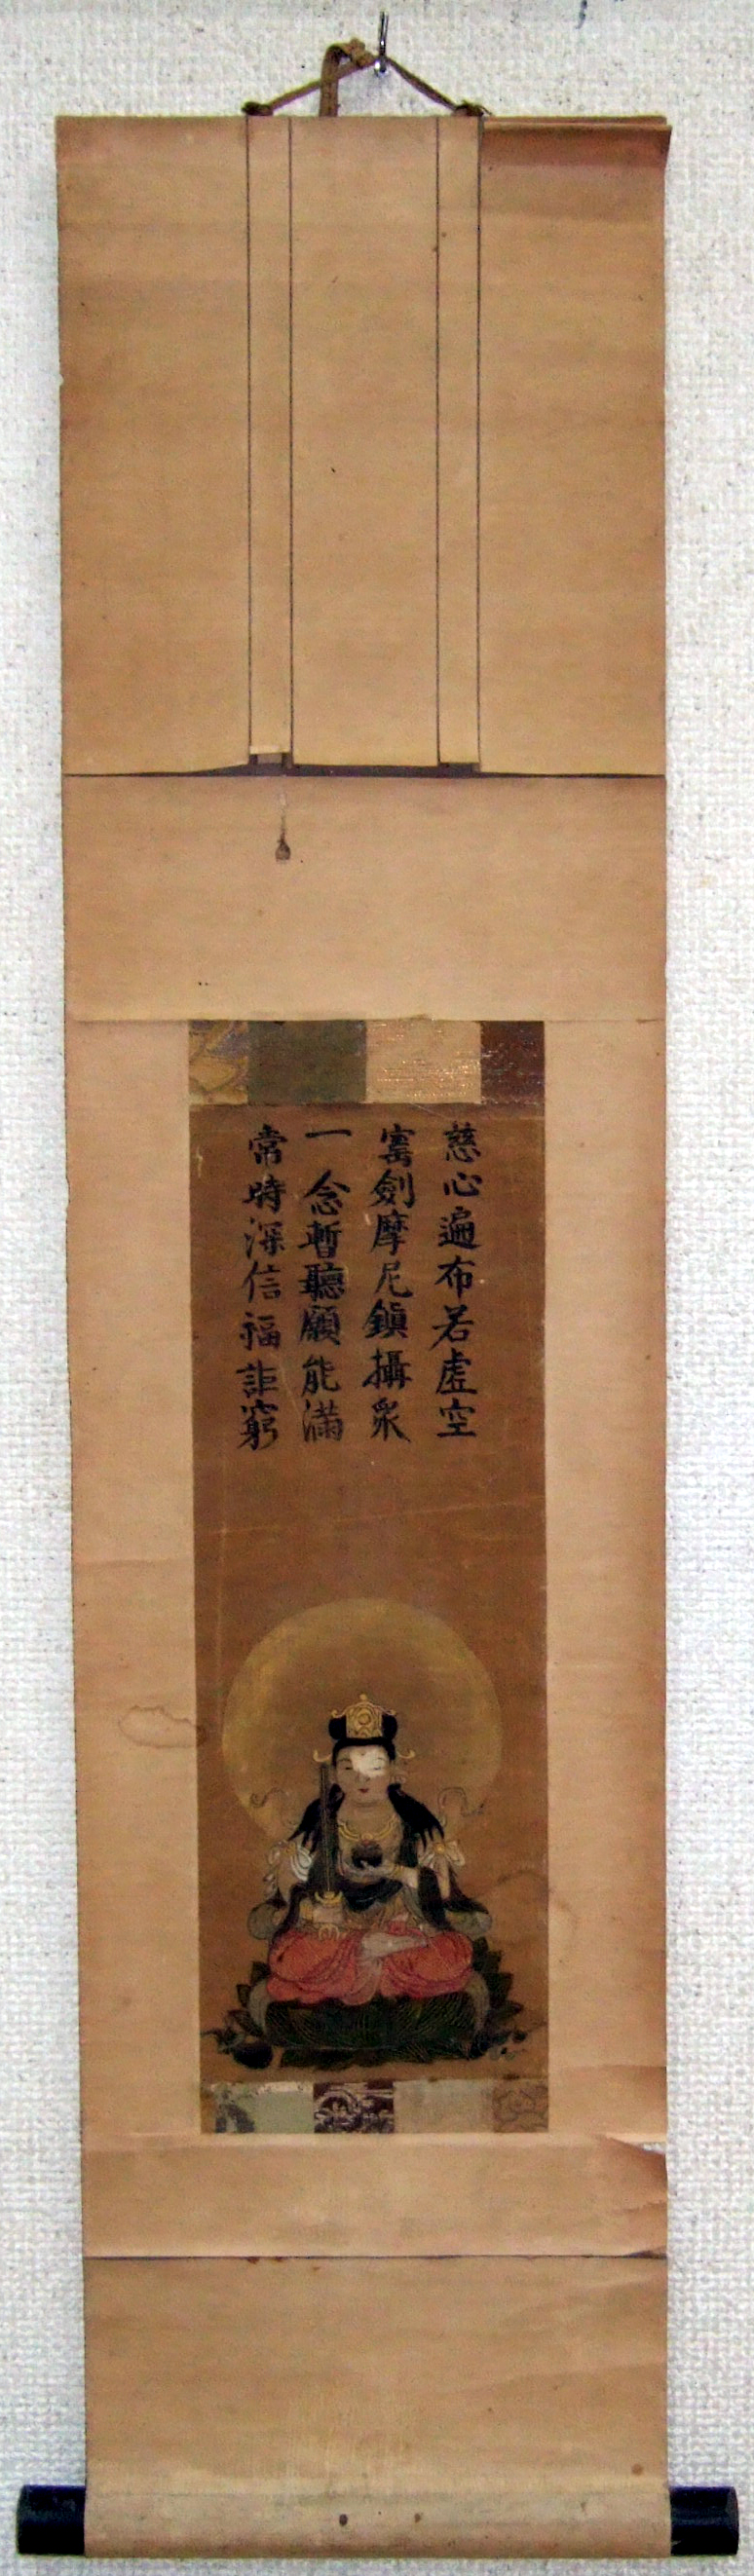 慈心遍布若虚空
寳劍摩尼鎮攝衆
一念暫聽願能満
常時深信福詎窮